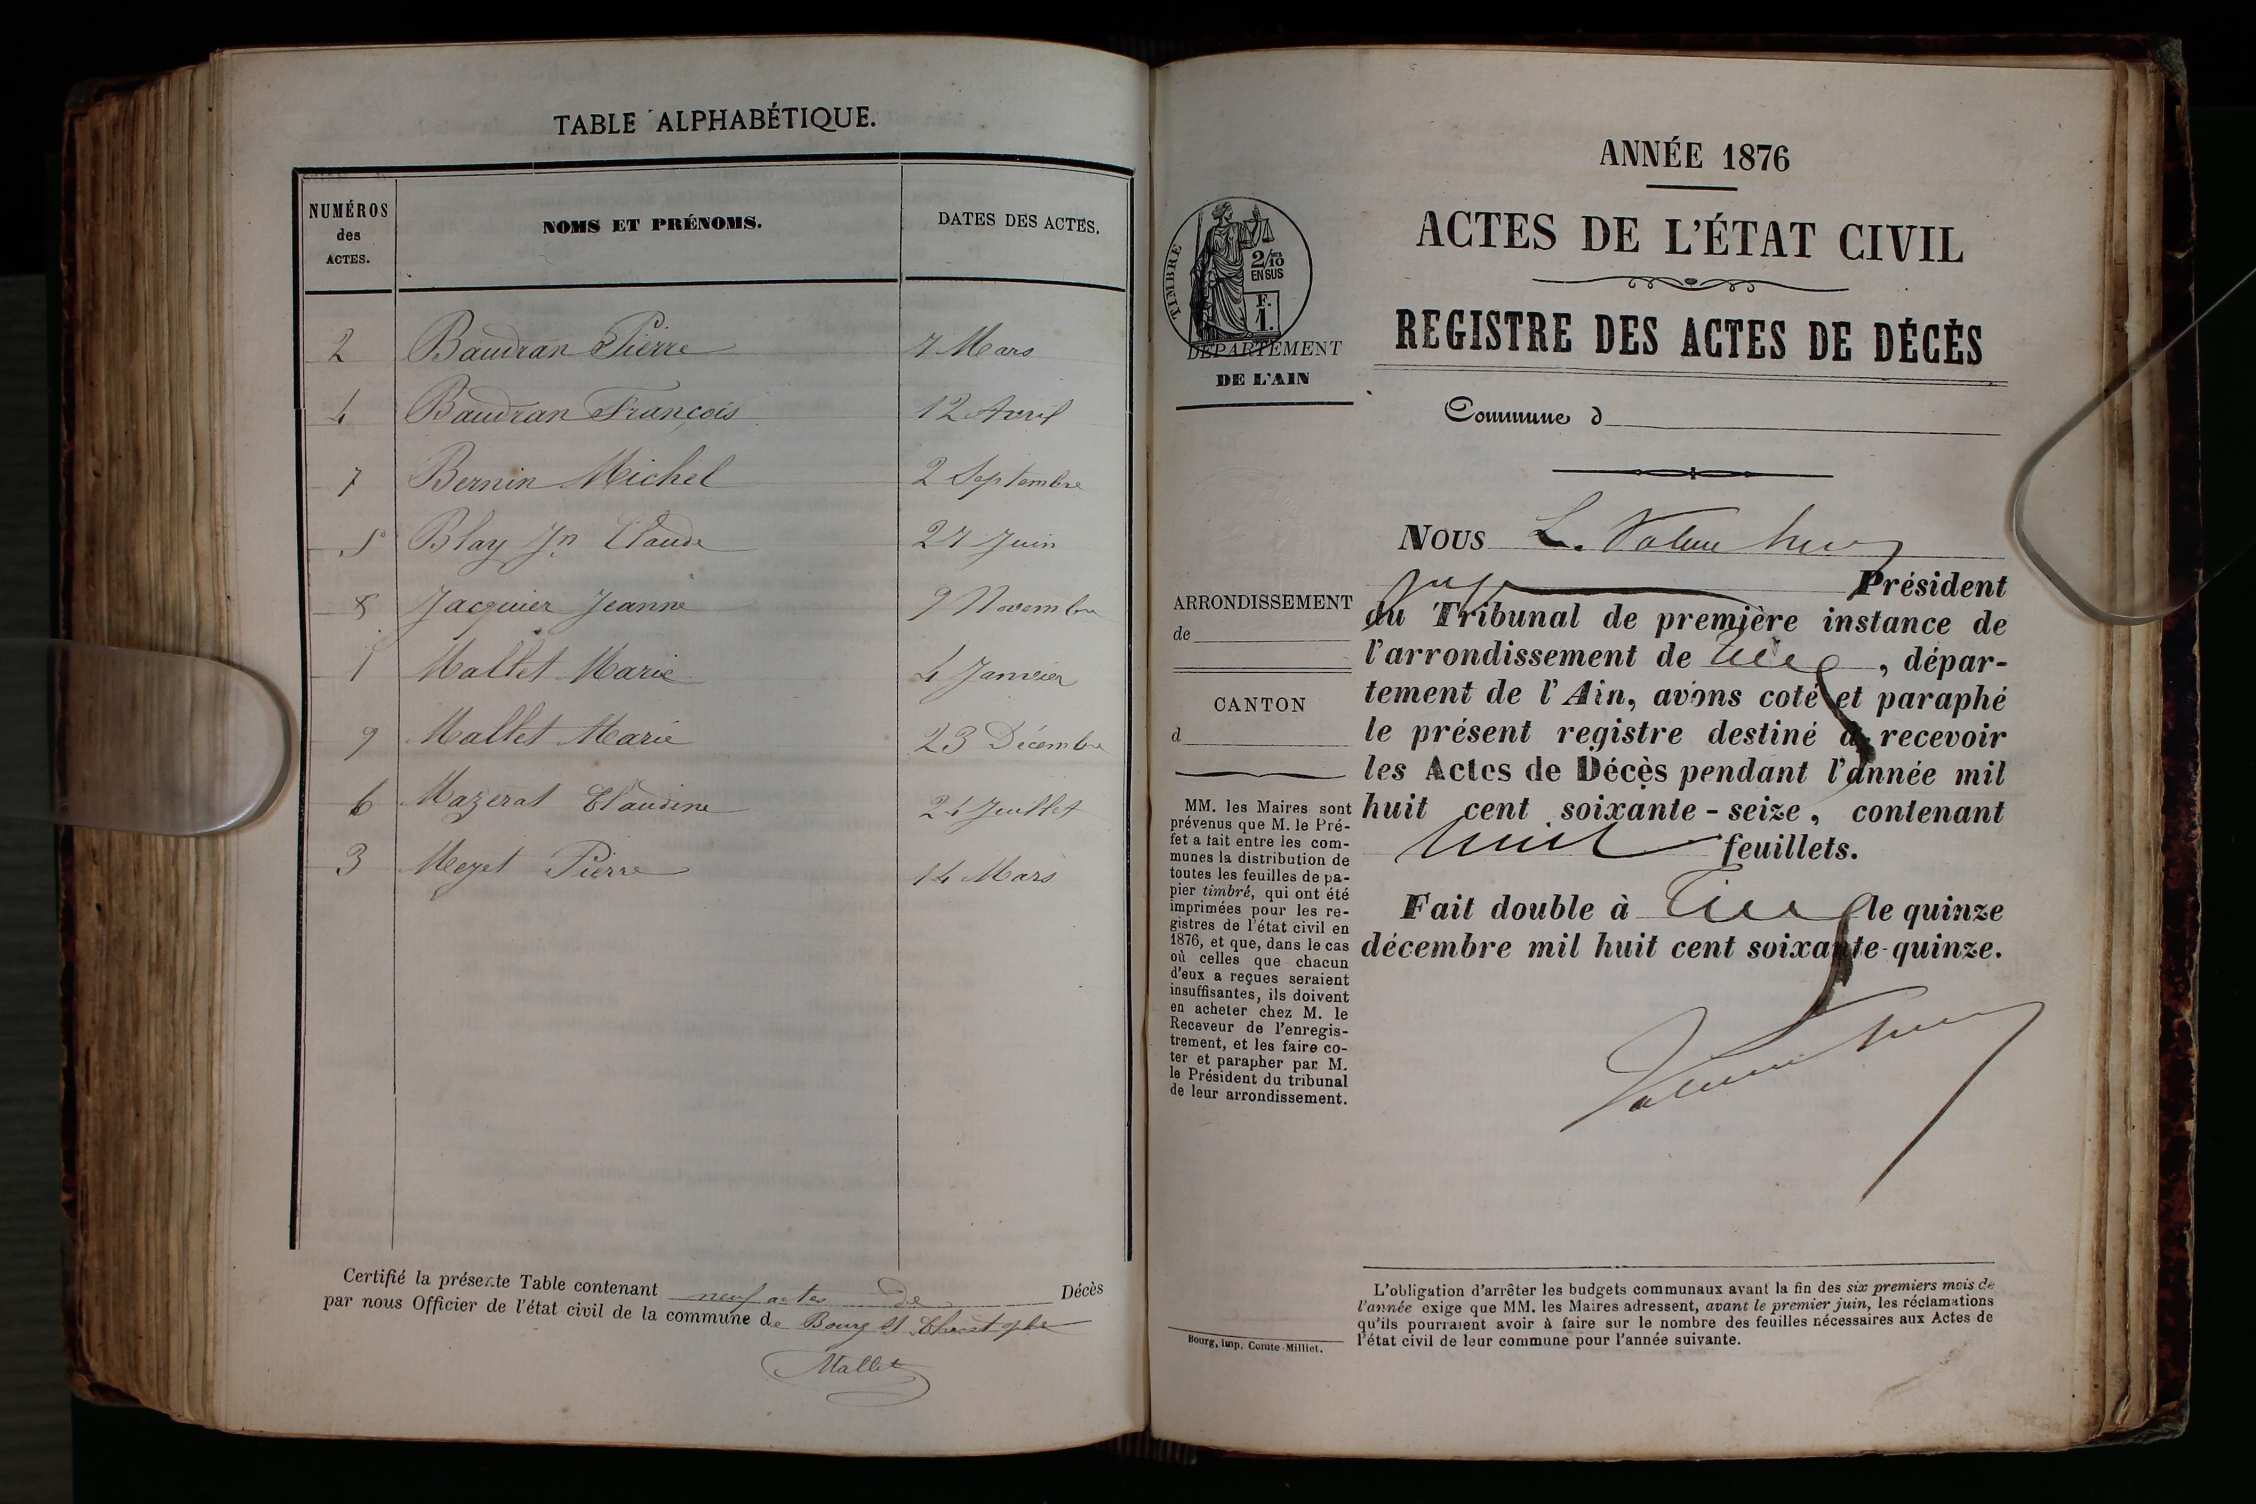 TABLE ALPHABÉTIQUE.
NUMÉROS des ACTES. NOMS ET PRÉNOMS. DATES DES ACTES.
2 Baudran Pierre 7 Mars
4 Baudran François 12 Avril
7 Bernin Michel 2 Septembre
5 Blay Jn Claude 27 Juin
8 Jacquier Jeanne 9 Novembre
1 Mallet Marie 4 Janvier
9 Mallet Marie 23 Décembre
6 Mazerat Claudine 24 Juillet
3 Meyet Pierre 14 Mars
Certifié la présente Table contenant neuf actes de Décès
par nous Officier de l'état civil de la commune de Bourg St Christophe
Mallet
TIMBRE
2/10
EN SUS
F.
1.
DÉPARTEMENT
DE L'AIN
ARRONDISSEMENT
de
CANTON
d
MM. les Maires sont
prévenus que M. le Pré-
fet a fait entre les com-
munes la distribution de
toutes les feuilles de pa-
pier timbré, qui ont été
imprimées pour les re-
gistres de l'état civil en
1876, et que, dans le cas
où celles que chacun
d'eux a reçues seraient
insuffisantes, ils doivent
en acheter chez M. le
Receveur de l'enregis-
trement, et les faire co-
ter et parapher par M.
le Président du tribunal
de leur arrondissement.
Bourg, imp. Comte-Milliet.
ANNÉE 1876
ACTES DE L'ÉTAT CIVIL
REGISTRE DES ACTES DE DÉCÈS
Commune d
Nous L.
juge Président
du Tribunal de première instance de
l'arrondissement de , dépar-
tement de l'Ain, avons coté et paraphé
le présent registre destiné à recevoir
les Actes de Décès pendant l'année mil
huit cent soixante-seize, contenant
huit feuillets.
Fait double à le quinze
décembre mil huit cent soixante-quinze.
L'obligation d'arrêter les budgets communaux avant la fin des six premiers mois de
l'année exige que MM. les Maires adressent, avant le premier juin, les réclamations
qu'ils pourraient avoir à faire sur le nombre des feuilles nécessaires aux Actes de
l'état civil de leur commune pour l'année suivante.